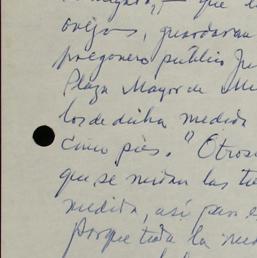 que l
ovejas, guardaran
pregonero público Ju
Plaza Mayor de Me
los de dicha medida
cinco pies." Otros
que se midan las ti
medida, así para e
porque toda la med